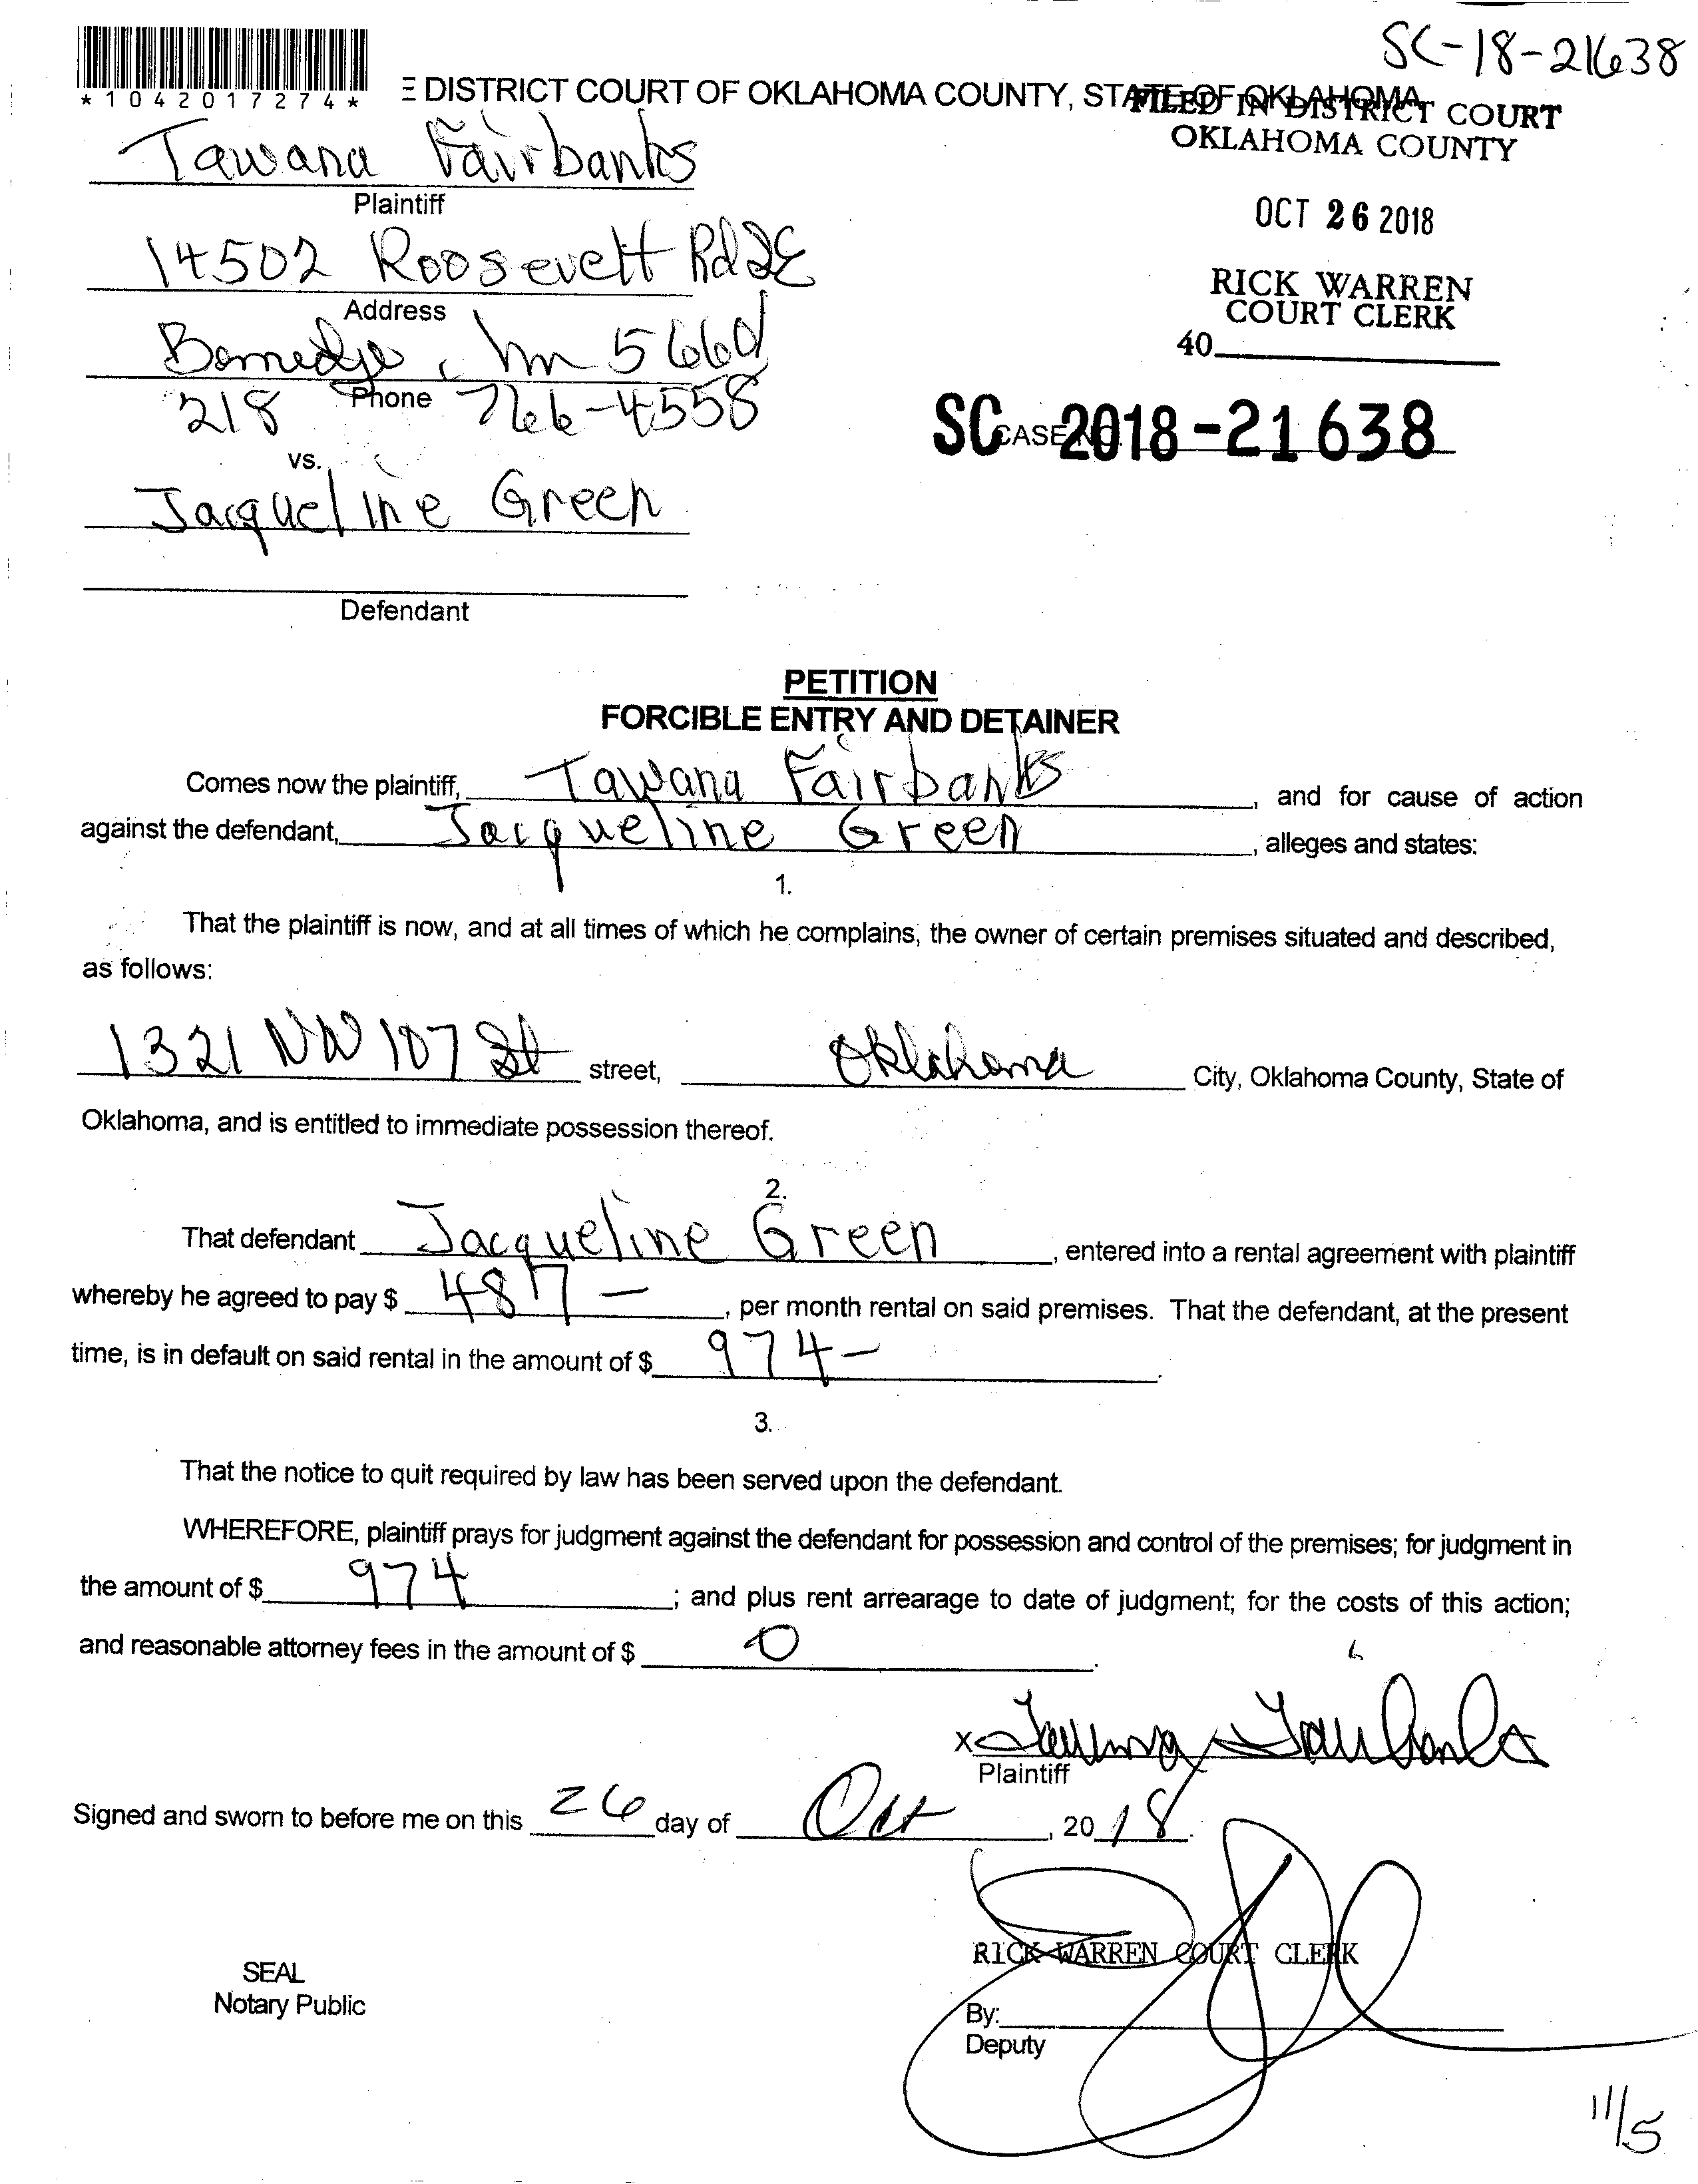 SC-18-21638
*1042017274*
E DISTRICT COURT OF OKLAHOMA COUNTY, STATE OF OKLAHOMA
FILED IN DISTRICT COURT
OKLAHOMA COUNTY
Tawana Fairbanks
Plaintiff
OCT 26 2018
14502 Roosevelt Rd SE
Address
RICK WARREN
COURT CLERK
40
mn 56601
Phone
218 766-4558
SC 2018-21638
CASE NO.
vs.
Jacqueline Green
Defendant
PETITION
FORCIBLE ENTRY AND DETAINER
Comes now the plaintiff, Tawana Fairbanks, and for cause of action
against the defendant, Jacqueline Green, alleges and states:
1.
That the plaintiff is now, and at all times of which he complains, the owner of certain premises situated and described,
as follows:
1321 NW 107 St street, Oklahoma City, Oklahoma County, State of
Oklahoma, and is entitled to immediate possession thereof.
2.
That defendant Jacqueline Green, entered into a rental agreement with plaintiff
whereby he agreed to pay $ 487-, per month rental on said premises. That the defendant, at the present
time, is in default on said rental in the amount of $ 974-.
3.
That the notice to quit required by law has been served upon the defendant.
WHEREFORE, plaintiff prays for judgment against the defendant for possession and control of the premises; for judgment in
the amount of $ 974; and plus rent arrearage to date of judgment; for the costs of this action;
and reasonable attorney fees in the amount of $ 0.
x Tawana Fairbanks
Plaintiff
Signed and sworn to before me on this 26 day of Oct, 2018.
RICK WARREN COURT CLERK
SEAL
Notary Public
By:
Deputy
11/5